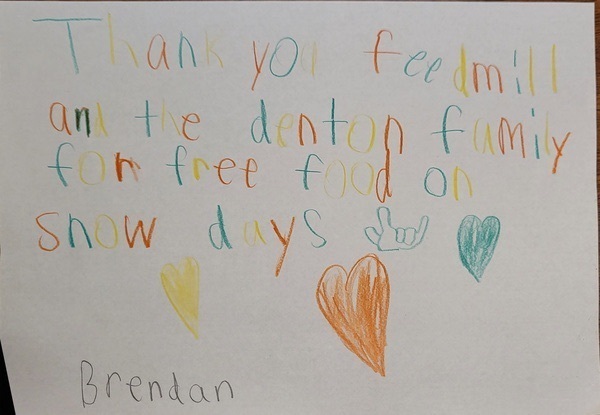 Thank you feedmill
and the denton family
for free food on
snow days
Brendan